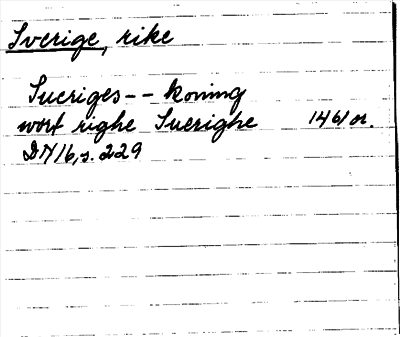 Sverige, rike
Sueriges -- koning
wort righe Suerighe 1461 or.
DN 16, s. 229